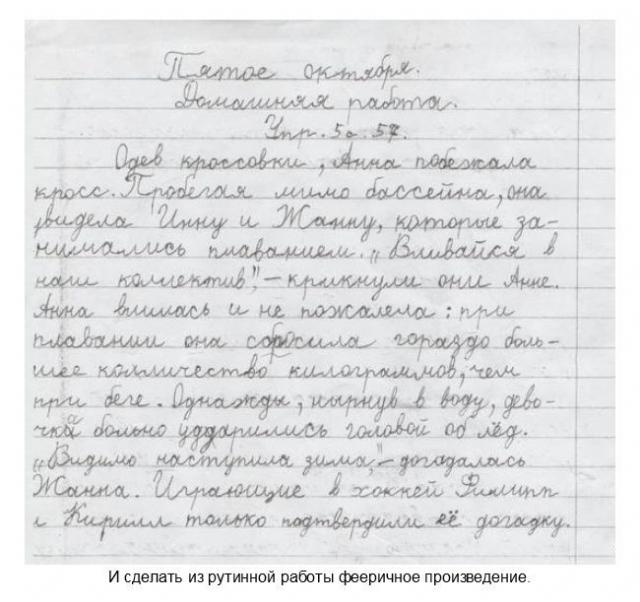 Пятое октября.
Домашняя работа.
Упр. 5а. 57.
Одев кроссовки, Анна побежала
кросс. Пробегая мимо бассейна, она
увидела Инну и Жанну, которые за-
нимались плаванием. „Вливайся в
наш коллектив", - крикнули они Анне.
Анна влилась и не пожалела: при
плавании она сбросила гораздо боль-
шее колличество килограммов, чем
при беге. Однажды, нырнув в воду, дево-
чка больно уддарились головой об лёд.
„Видимо наступила зима", - догадалась
Жанна. Играющие в хоккей Филипп
и Кирилл только подтвердили её догадку.
И сделать из рутинной работы фееричное произведение.